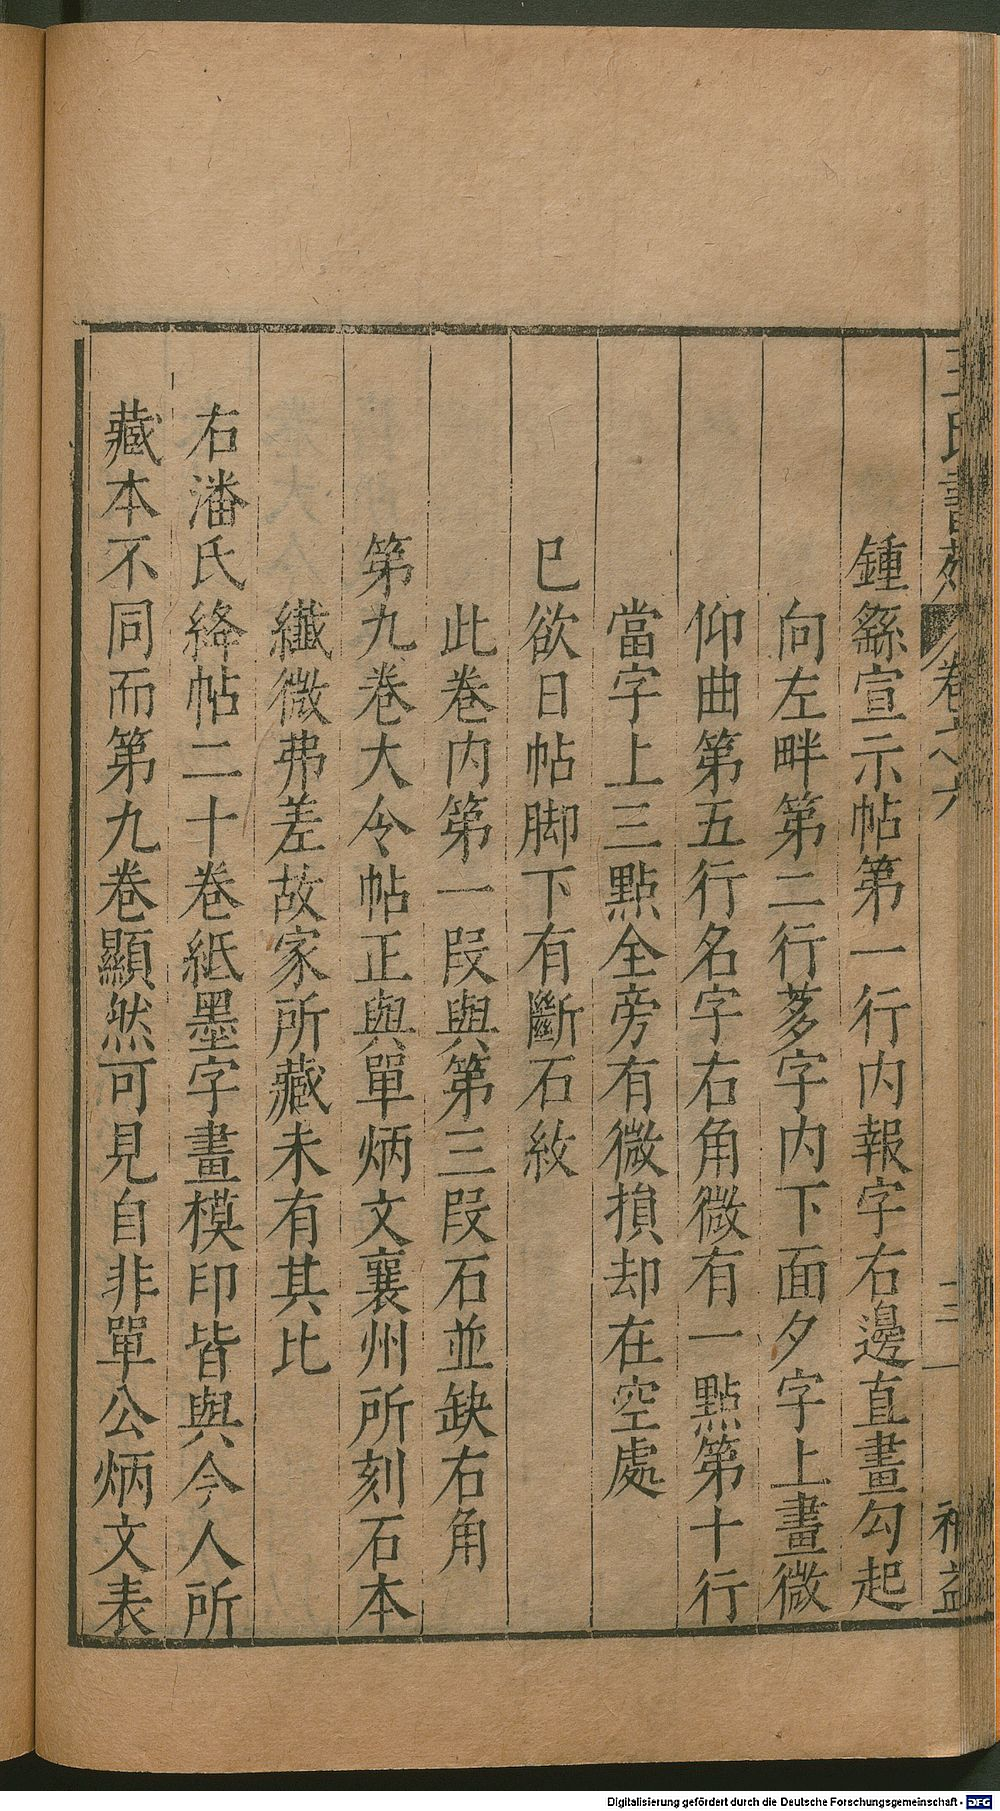 王氏書苑 卷之六 三一 補益
鍾繇宣示帖第一行内報字右邊直畫勾起
向左畔第二行蒭字内下面夕字上畫微
仰曲第五行名字右角微有一點第十行
當字上三點全旁有微損却在空處
已欲日帖脚下有斷石紋
此卷内第一段與第三段石並缺右角
第九卷大令帖正與單炳文襄州所刻石本
纖微弗差故家所藏未有其比
右潘氏絳帖二十卷紙墨字畫模印皆與今人所
藏本不同而第九卷顯然可見自非單公炳文表
Digitalisierung gefördert durch die Deutsche Forschungsgemeinschaft - DFG